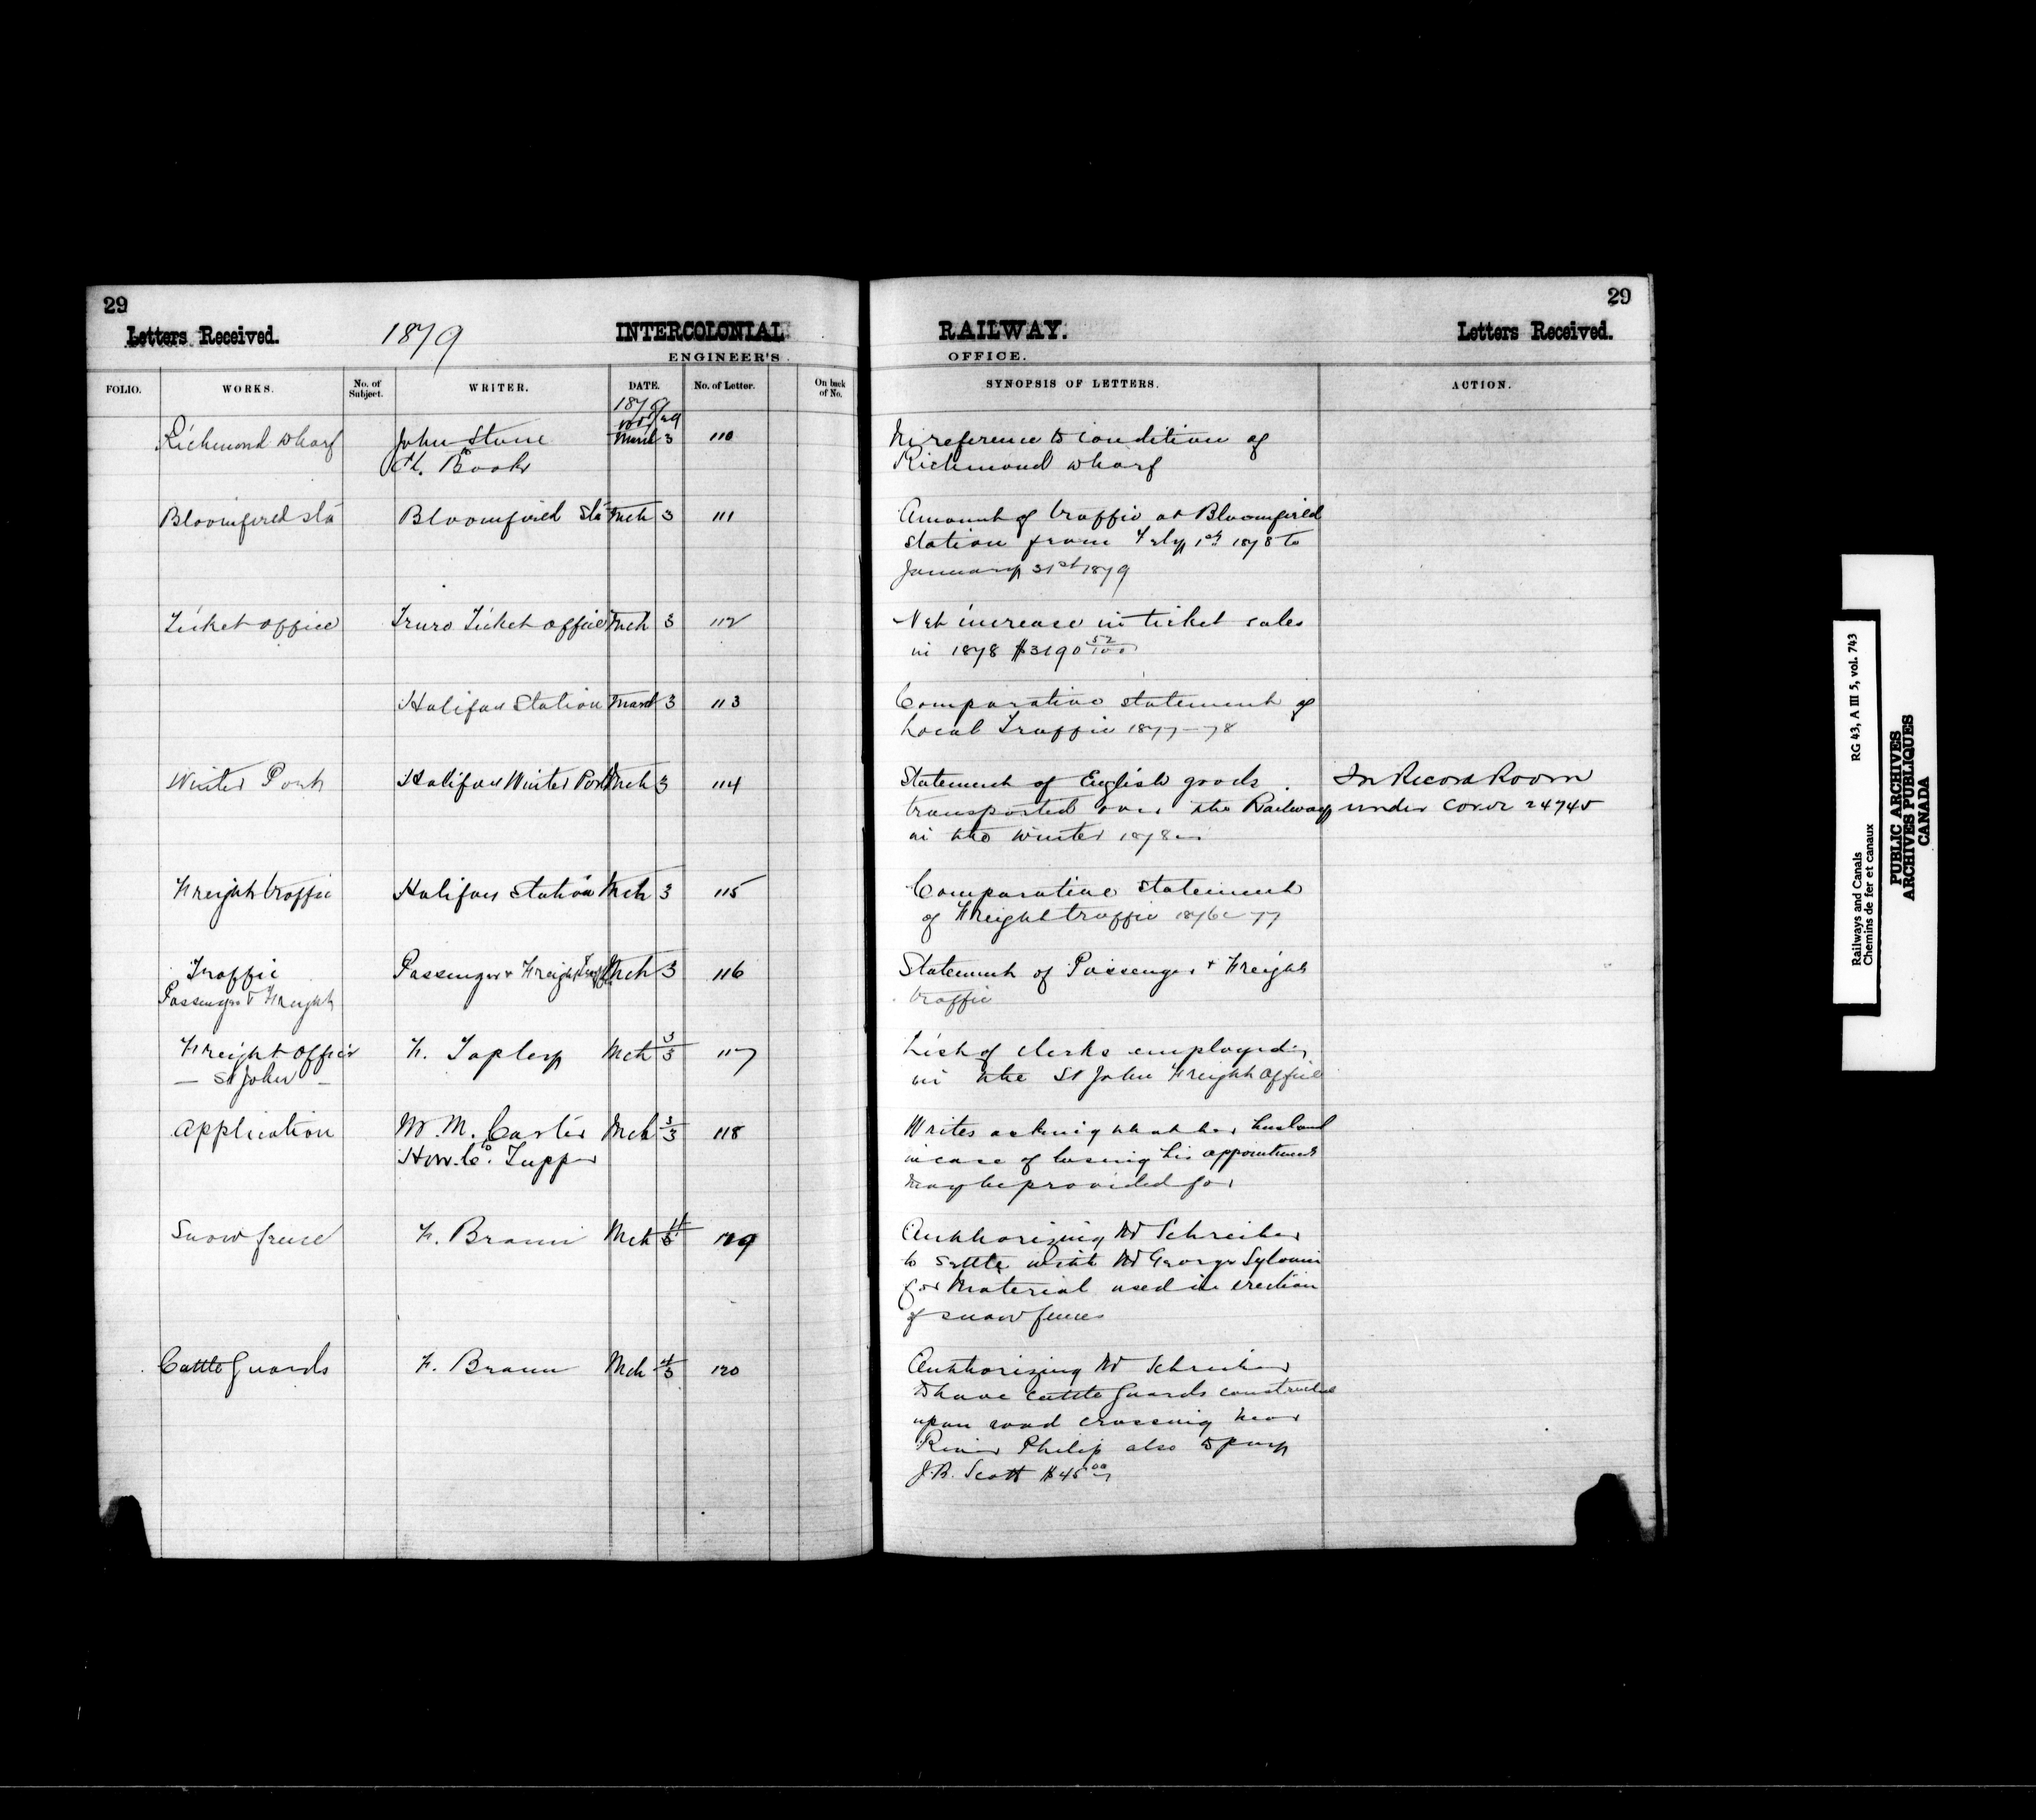 29
Letters Received. 1879 INTERCOLONIAL
ENGINEER'S
FOLIO. WORKS. No. of Subject. WRITER. DATE. No. of Letter. On back of No.
Richmond Wharf John Stone March 3 110
Bloomfield Sta Bloomfield Sta Mch 3 111
Ticket office Truro Ticket office Mch 3 112
Halifax Station March 3 113
Winter Port Halifax Winter Port Mch 3 114
Freight traffic Halifax Station Mch 3 115
Traffic Passenger + Freight Mch 3 116
Passenger + Freight
Freight office F. Tapley Mch 3/3 117
— St John —
Application M. M. Carter Mch 3/3 118
Hon. C. Tupper
Snow fence F. Braun Mch 119
Cattle Guards F. Braun Mch 120
29
RAILWAY. Letters Received.
OFFICE.
SYNOPSIS OF LETTERS. ACTION.
In reference to condition of
Richmond Wharf
Amount of traffic at Bloomfield
Station from 1st 1878 to
January 31st 1879
Net increase in ticket sales
in 1878 $3190 52/100
Comparative statement of
Local Traffic 1877-78
Statement of English goods In Record Room
transported over the Railway under cover 24745
in the Winter 1878
Comparative Statement
of Freight traffic 1876-77
Statement of Passenger + Freight
traffic
List of clerks employed
in the St John Freight Office
Writes asking that her husband
in case of losing his appointment
may be provided for
Authorizing Mr Schreiber
to settle with Mr George Sylvain
for Material used in erection
of snow fences
Authorizing Mr Schreiber
to have cattle guards constructed
upon road crossing near
River Philip also to pay
J.B. Scott $45 00
RG 43, A III 5, vol. 743
Railways and Canals
Chemins de fer et canaux
PUBLIC ARCHIVES
ARCHIVES PUBLIQUES
CANADA